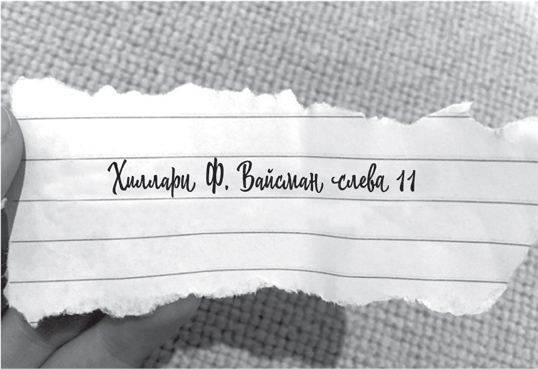 Хиллари Ф. Вайсман слева 11